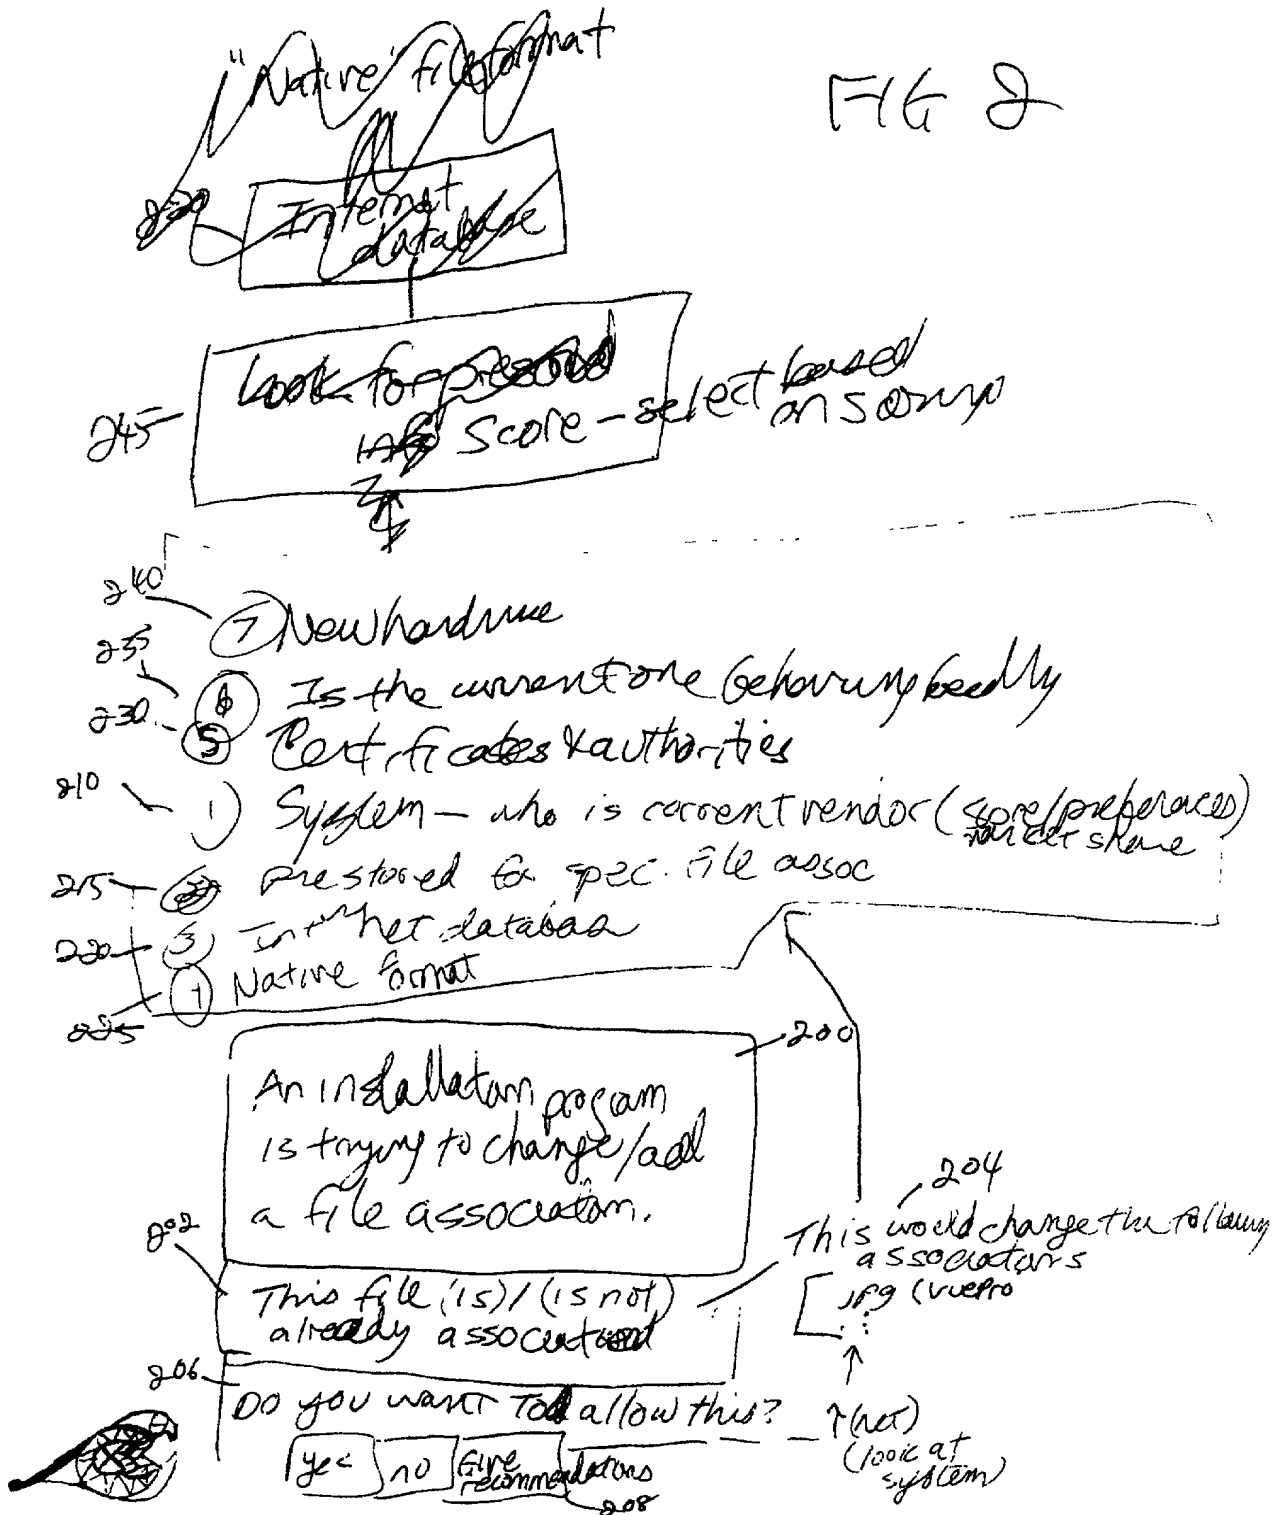 "Native" file format
FIG 2
220
Internet
database
Look for prestored
info Score - select based
on scoring
245
240
7 New hardware
235
6 Is the current one behaving badly
230
5 Certificates & authorities
210
1) System - who is current vendor (score/preferences)
market share
215
prestored for spec. file assoc
220
3) Internet database
225
Native format
200
An installation program
is trying to change/add
a file association.
202
This file (is)/(is not)
already associated
204
This would change the following
associations
jpg (vuepro
206
Do you want to allow this?
yes no Give
recommendations
208
(net)
(look at
system)